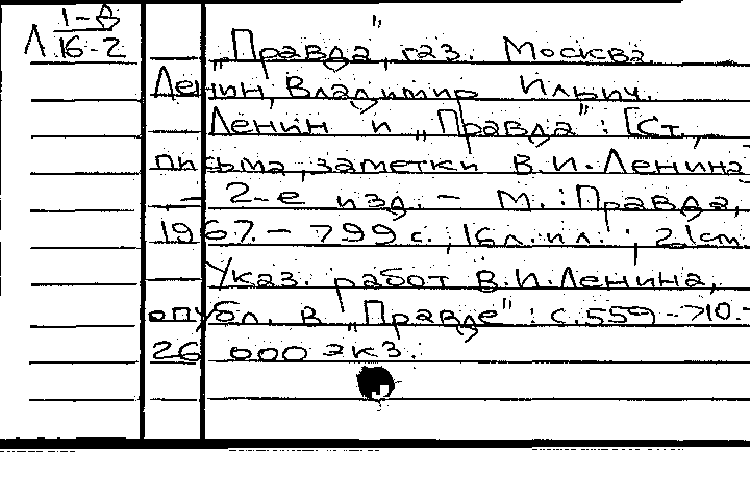 1-В
Л 16-2
„Правда", газ. Москва.
Ленин, Владимир Ильич.
Ленин и „Правда" : [Ст.,
письма, заметки В.И.Ленина
- 2-е изд. - М. : Правда,
1967. - 799 с., 16 л. ил. ; 21 см.
Указ. работ В.И.Ленина,
опубл. в „Правде" : с. 559-710. -
26 000 экз.